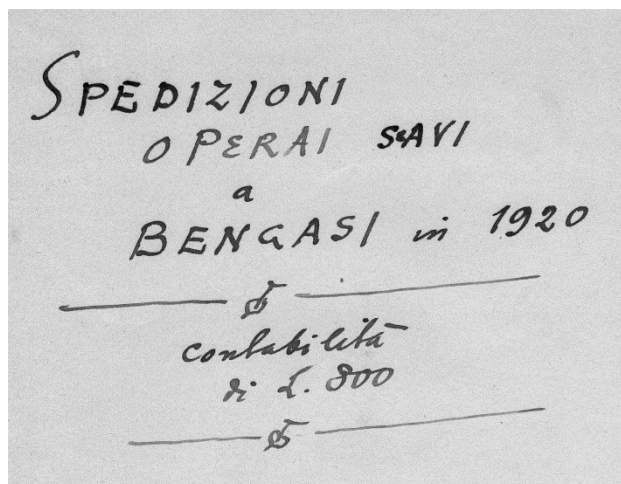 SPEDIZIONI
OPERAI SCAVI
a
BENGASI in 1920
contabilità
di L. 800